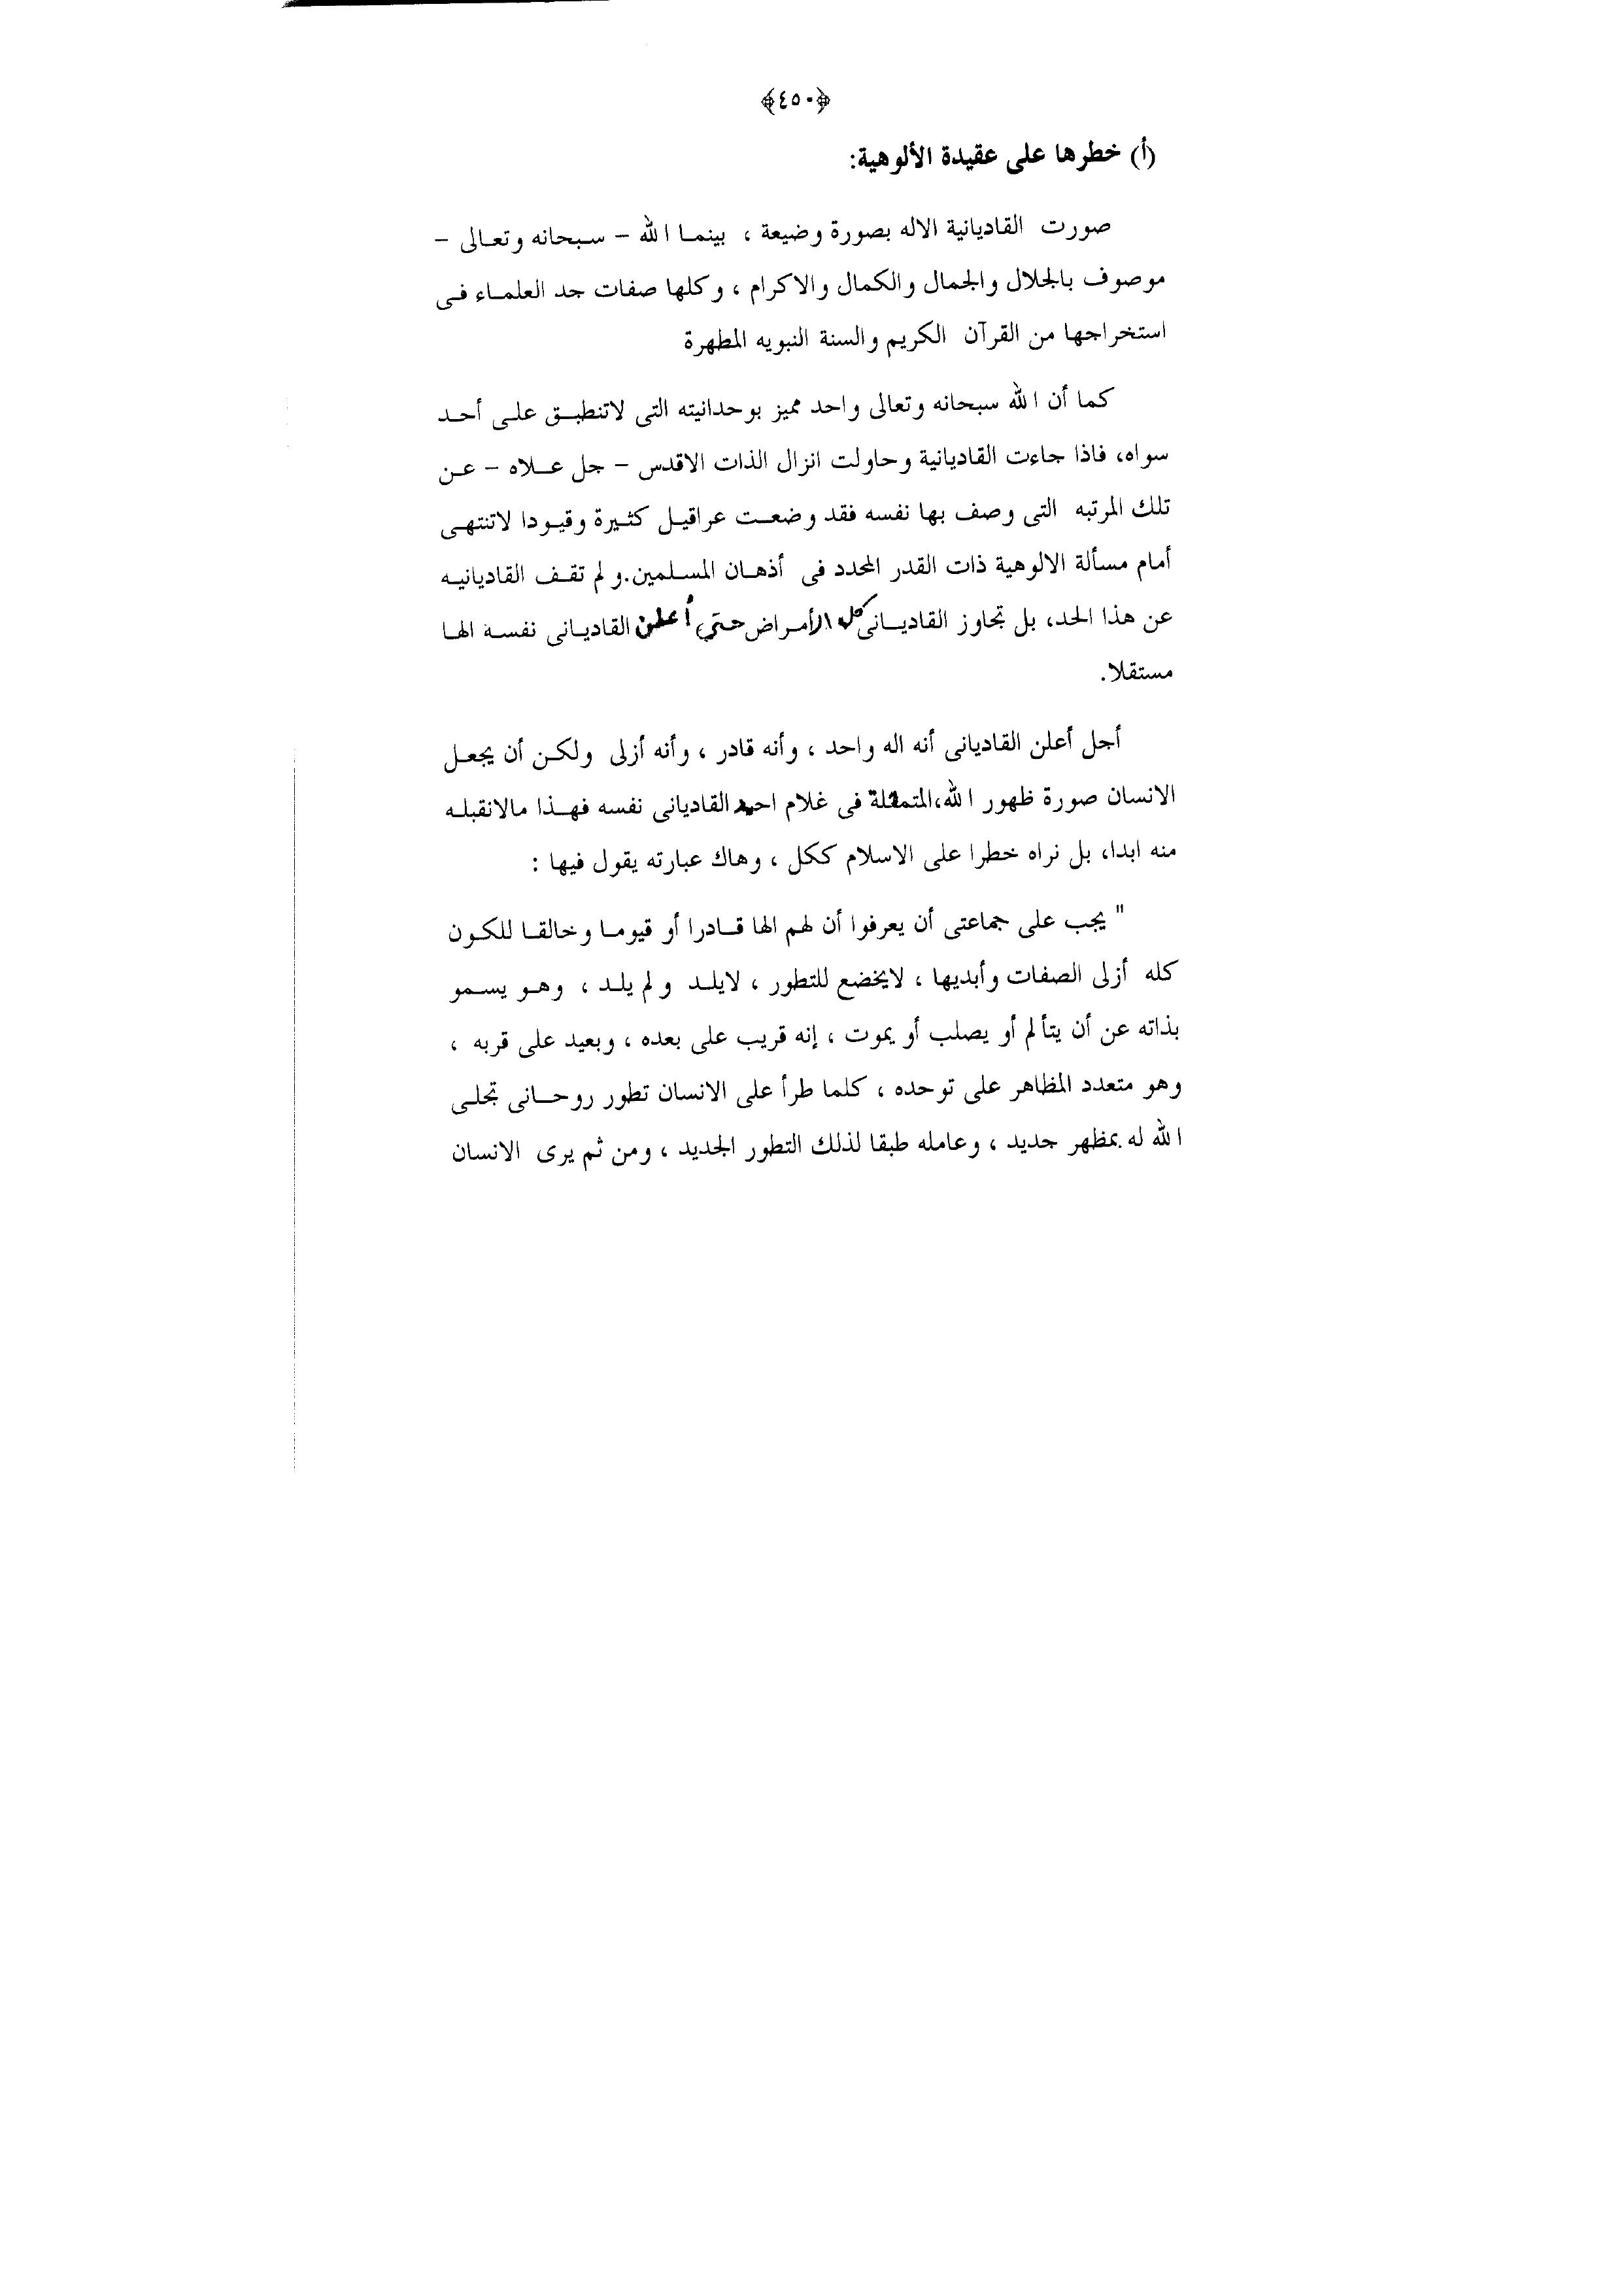 ﴿٤٥٠﴾
(أ) خطرها على عقيدة الألوهية:
صورت القاديانية الاله بصورة وضيعة ، بينما الله – سبحانه وتعالى –
موصوف بالجلال والجمال والكمال والاكرام ، وكلها صفات جد العلماء فى
استخراجها من القرآن الكريم والسنة النبويه المطهرة
كما أن الله سبحانه وتعالى واحد مميز بوحدانيته التى لاتنطبق على أحد
سواه، فاذا جاءت القاديانية وحاولت انزال الذات الاقدس – جل علاه – عن
تلك المرتبه التى وصف بها نفسه فقد وضعت عراقيل كثيرة وقيودا لاتنتهى
أمام مسألة الالوهية ذات القدر المحدد فى أذهان المسلمين.و لم تقف القاديانيه
عن هذا الحد، بل تجاوز القاديانى كل الأمراض حتى أعلن القاديانى نفسه الها
مستقلا.
أجل أعلن القاديانى أنه اله واحد ، وأنه قادر ، وأنه أزلى ولكن أن يجعل
الانسان صورة ظهور الله،المتمثلة فى غلام احمد القاديانى نفسه فهذا مالانقبله
منه ابدا، بل نراه خطرا على الاسلام ككل ، وهاك عبارته يقول فيها :
" يجب على جماعتى أن يعرفوا أن لهم الها قادرا أو قيوما وخالقا للكون
كله أزلى الصفات وأبديها ، لايخضع للتطور ، لايلد و لم يلد ، وهو يسمو
بذاته عن أن يتألم أو يصلب أو يموت ، إنه قريب على بعده ، وبعيد على قربه ،
وهو متعدد المظاهر على توحده ، كلما طرأ على الانسان تطور روحانى تجلى
الله له بمظهر جديد ، وعامله طبقا لذلك التطور الجديد ، ومن ثم يرى الانسان